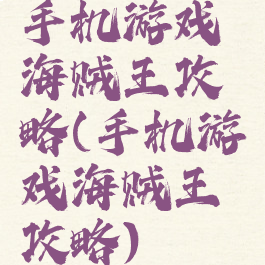 手机游戏
海贼王攻
略(手机游
戏海贼王
攻略)